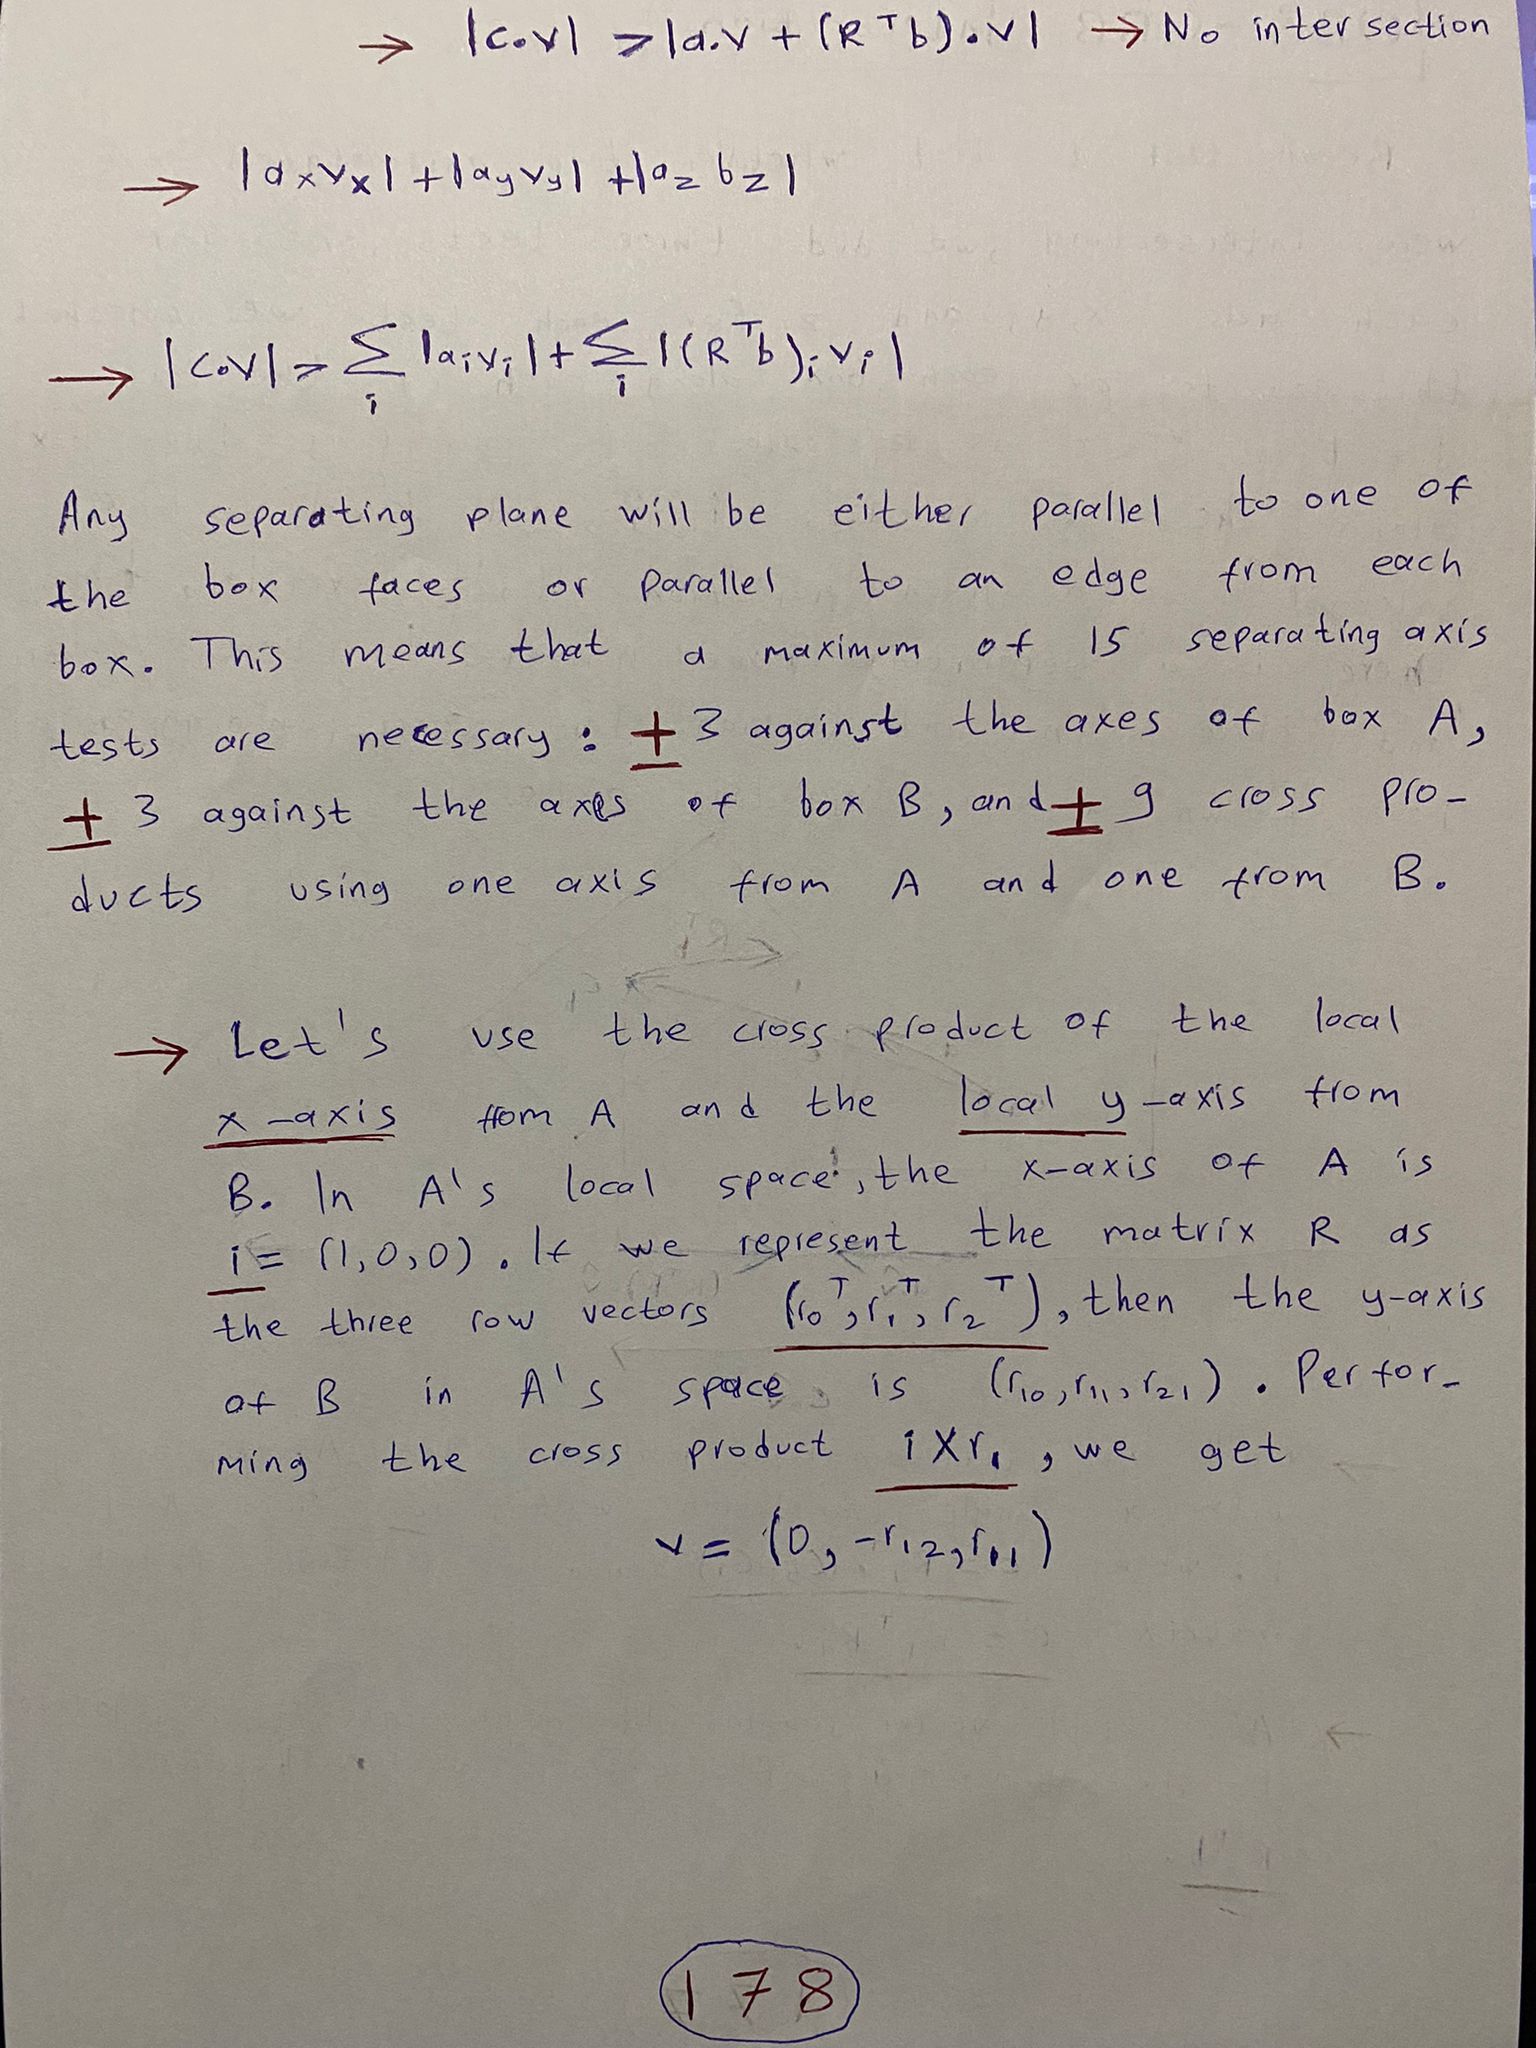 → |c.v| > |a.v + (Rᵀb).v| → No intersection
→ |aₓvₓ| + |a_y v_y| + |a_z b_z|
→ |c.v| > Σᵢ |aᵢvᵢ| + Σᵢ |(Rᵀb)ᵢ vᵢ|
Any separating plane will be either parallel to one of
the box faces or parallel to an edge from each
box. This means that a maximum of 15 separating axis
tests are necessary: ± 3 against the axes of box A,
± 3 against the axes of box B, and ± 9 cross pro-
ducts using one axis from A and one from B.
→ Let's use the cross product of the local
x-axis from A and the local y-axis from
B. In A's local space, the x-axis of A is
i = (1,0,0). If we represent the matrix R as
the three row vectors (r₀ᵀ, r₁ᵀ, r₂ᵀ), then the y-axis
of B in A's space is (r₁₀, r₁₁, r₂₁). Perfor-
ming the cross product i X r₁, we get
v = (0, -r₁₂, r₁₁)
178